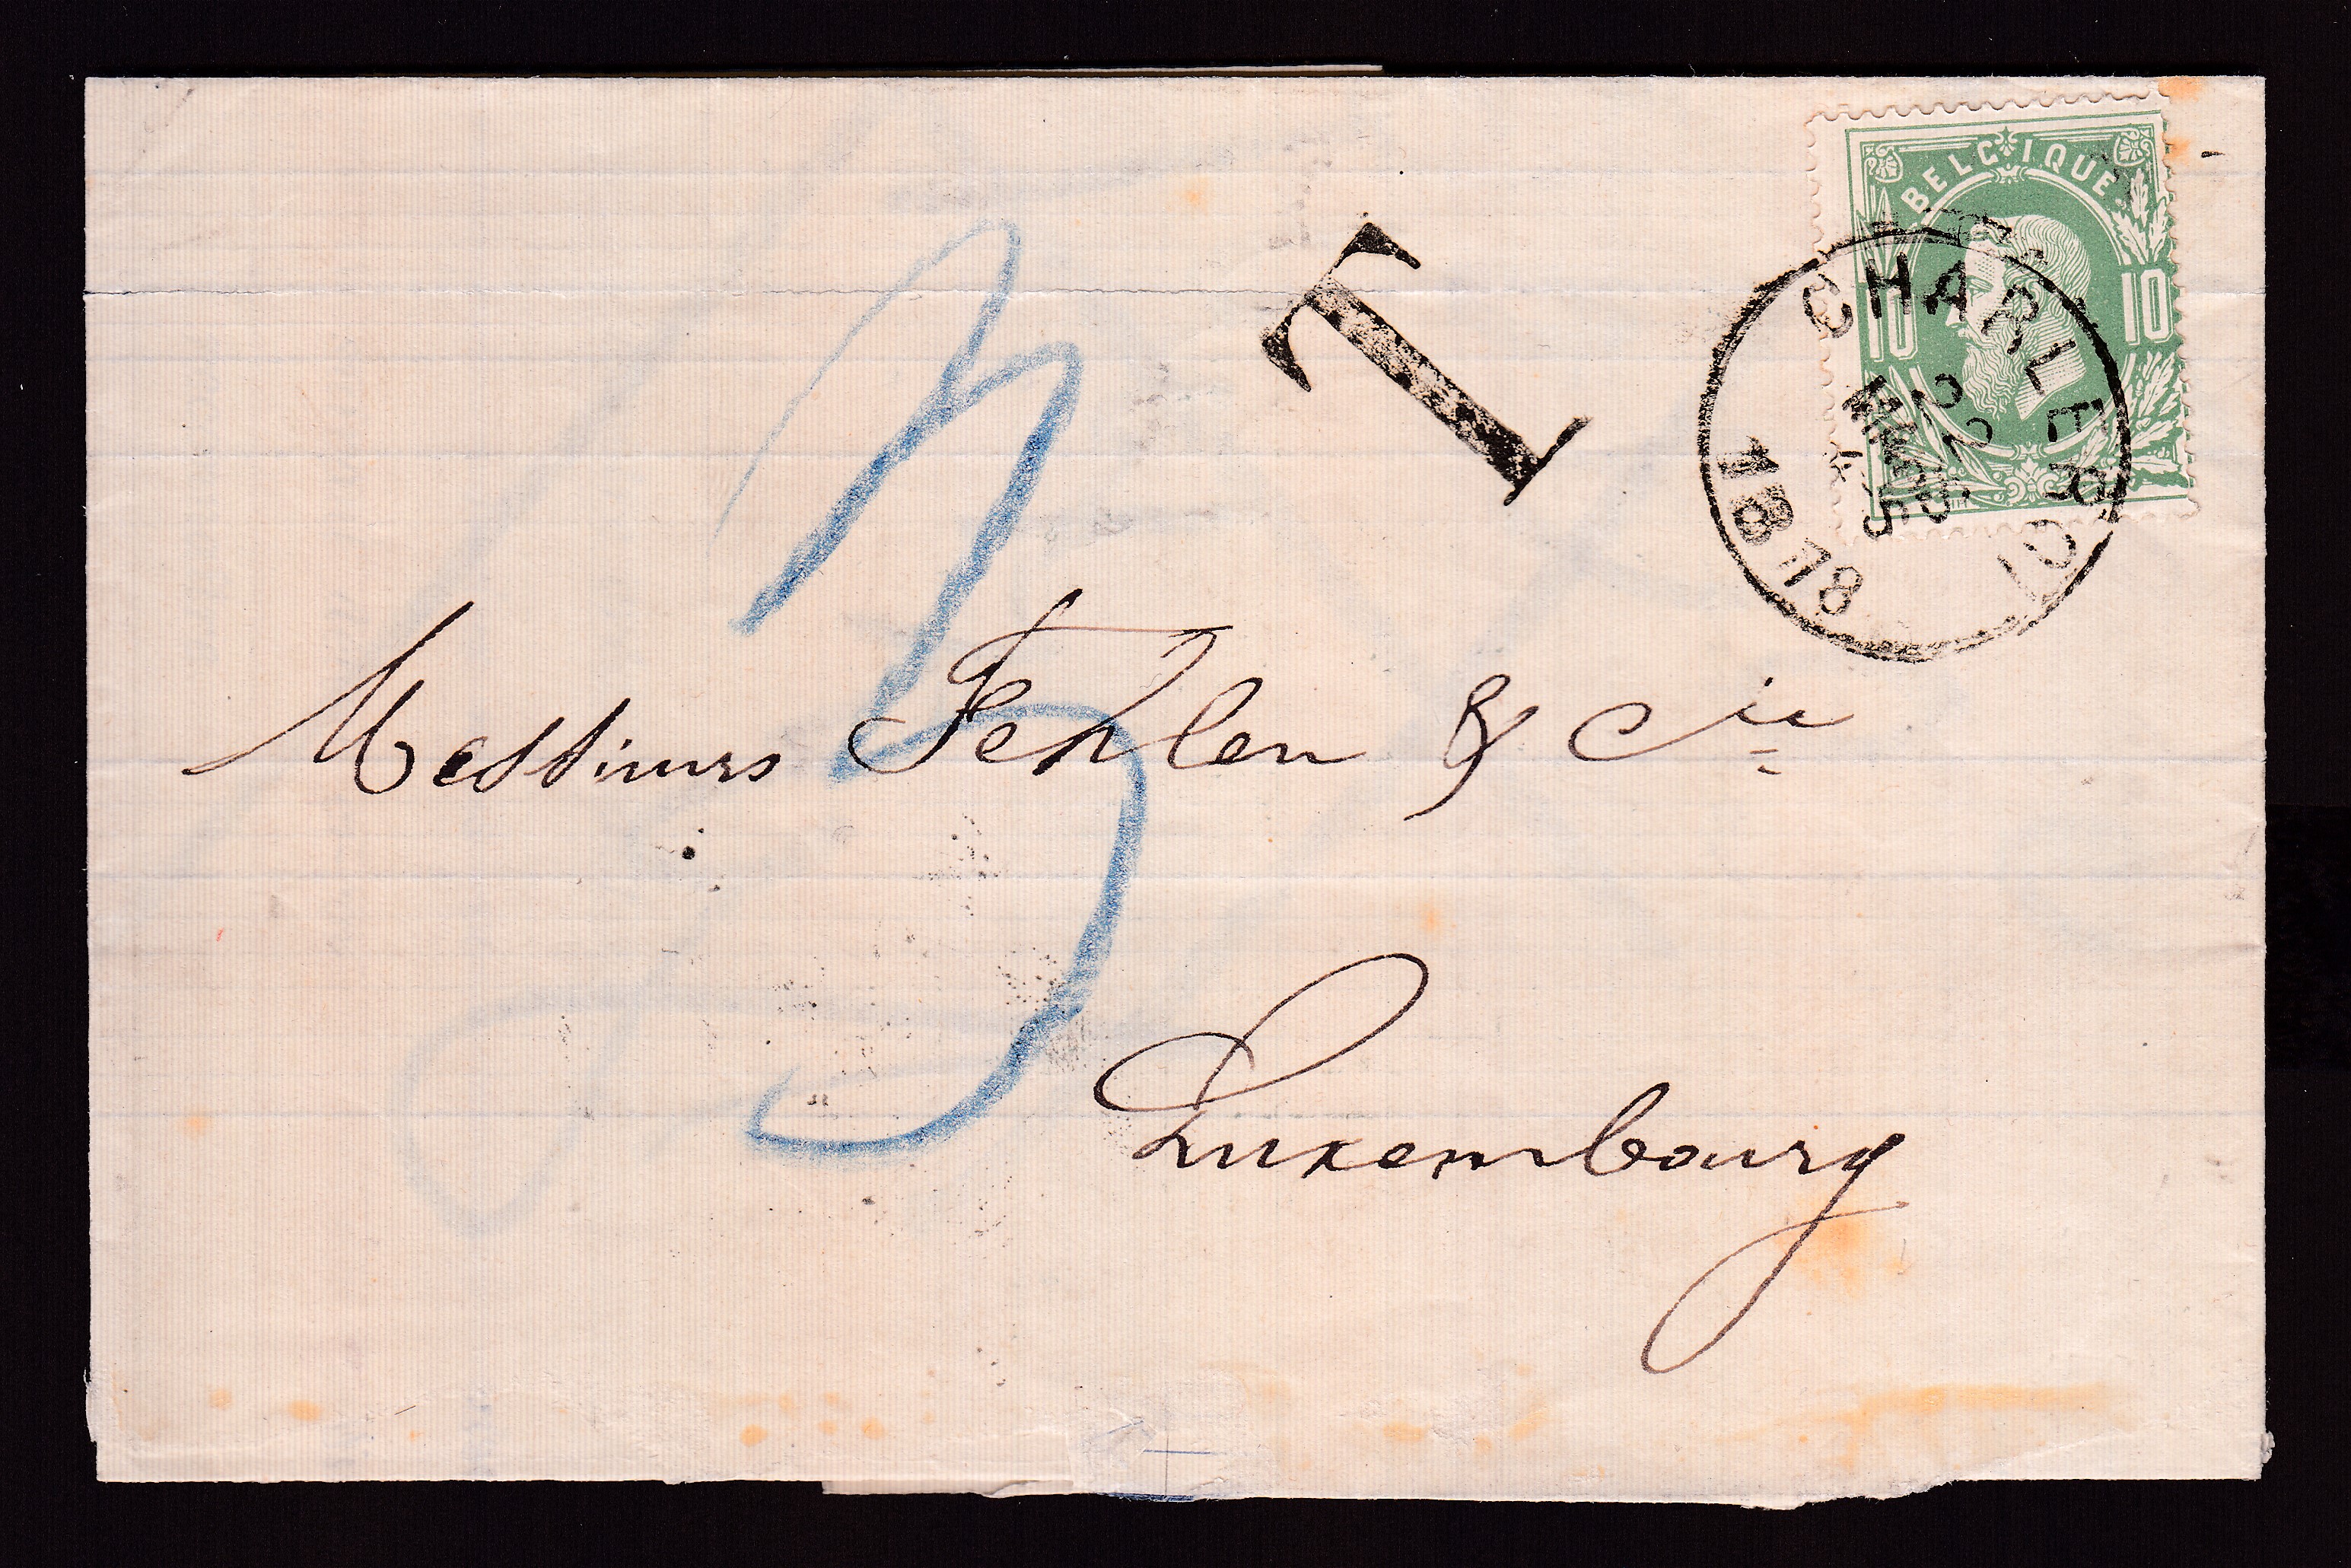 BELGIQUE
10 10
CHARLEROI
22 MARS
1878
T
3
Messieurs Fehlen & Cie
Luxembourg